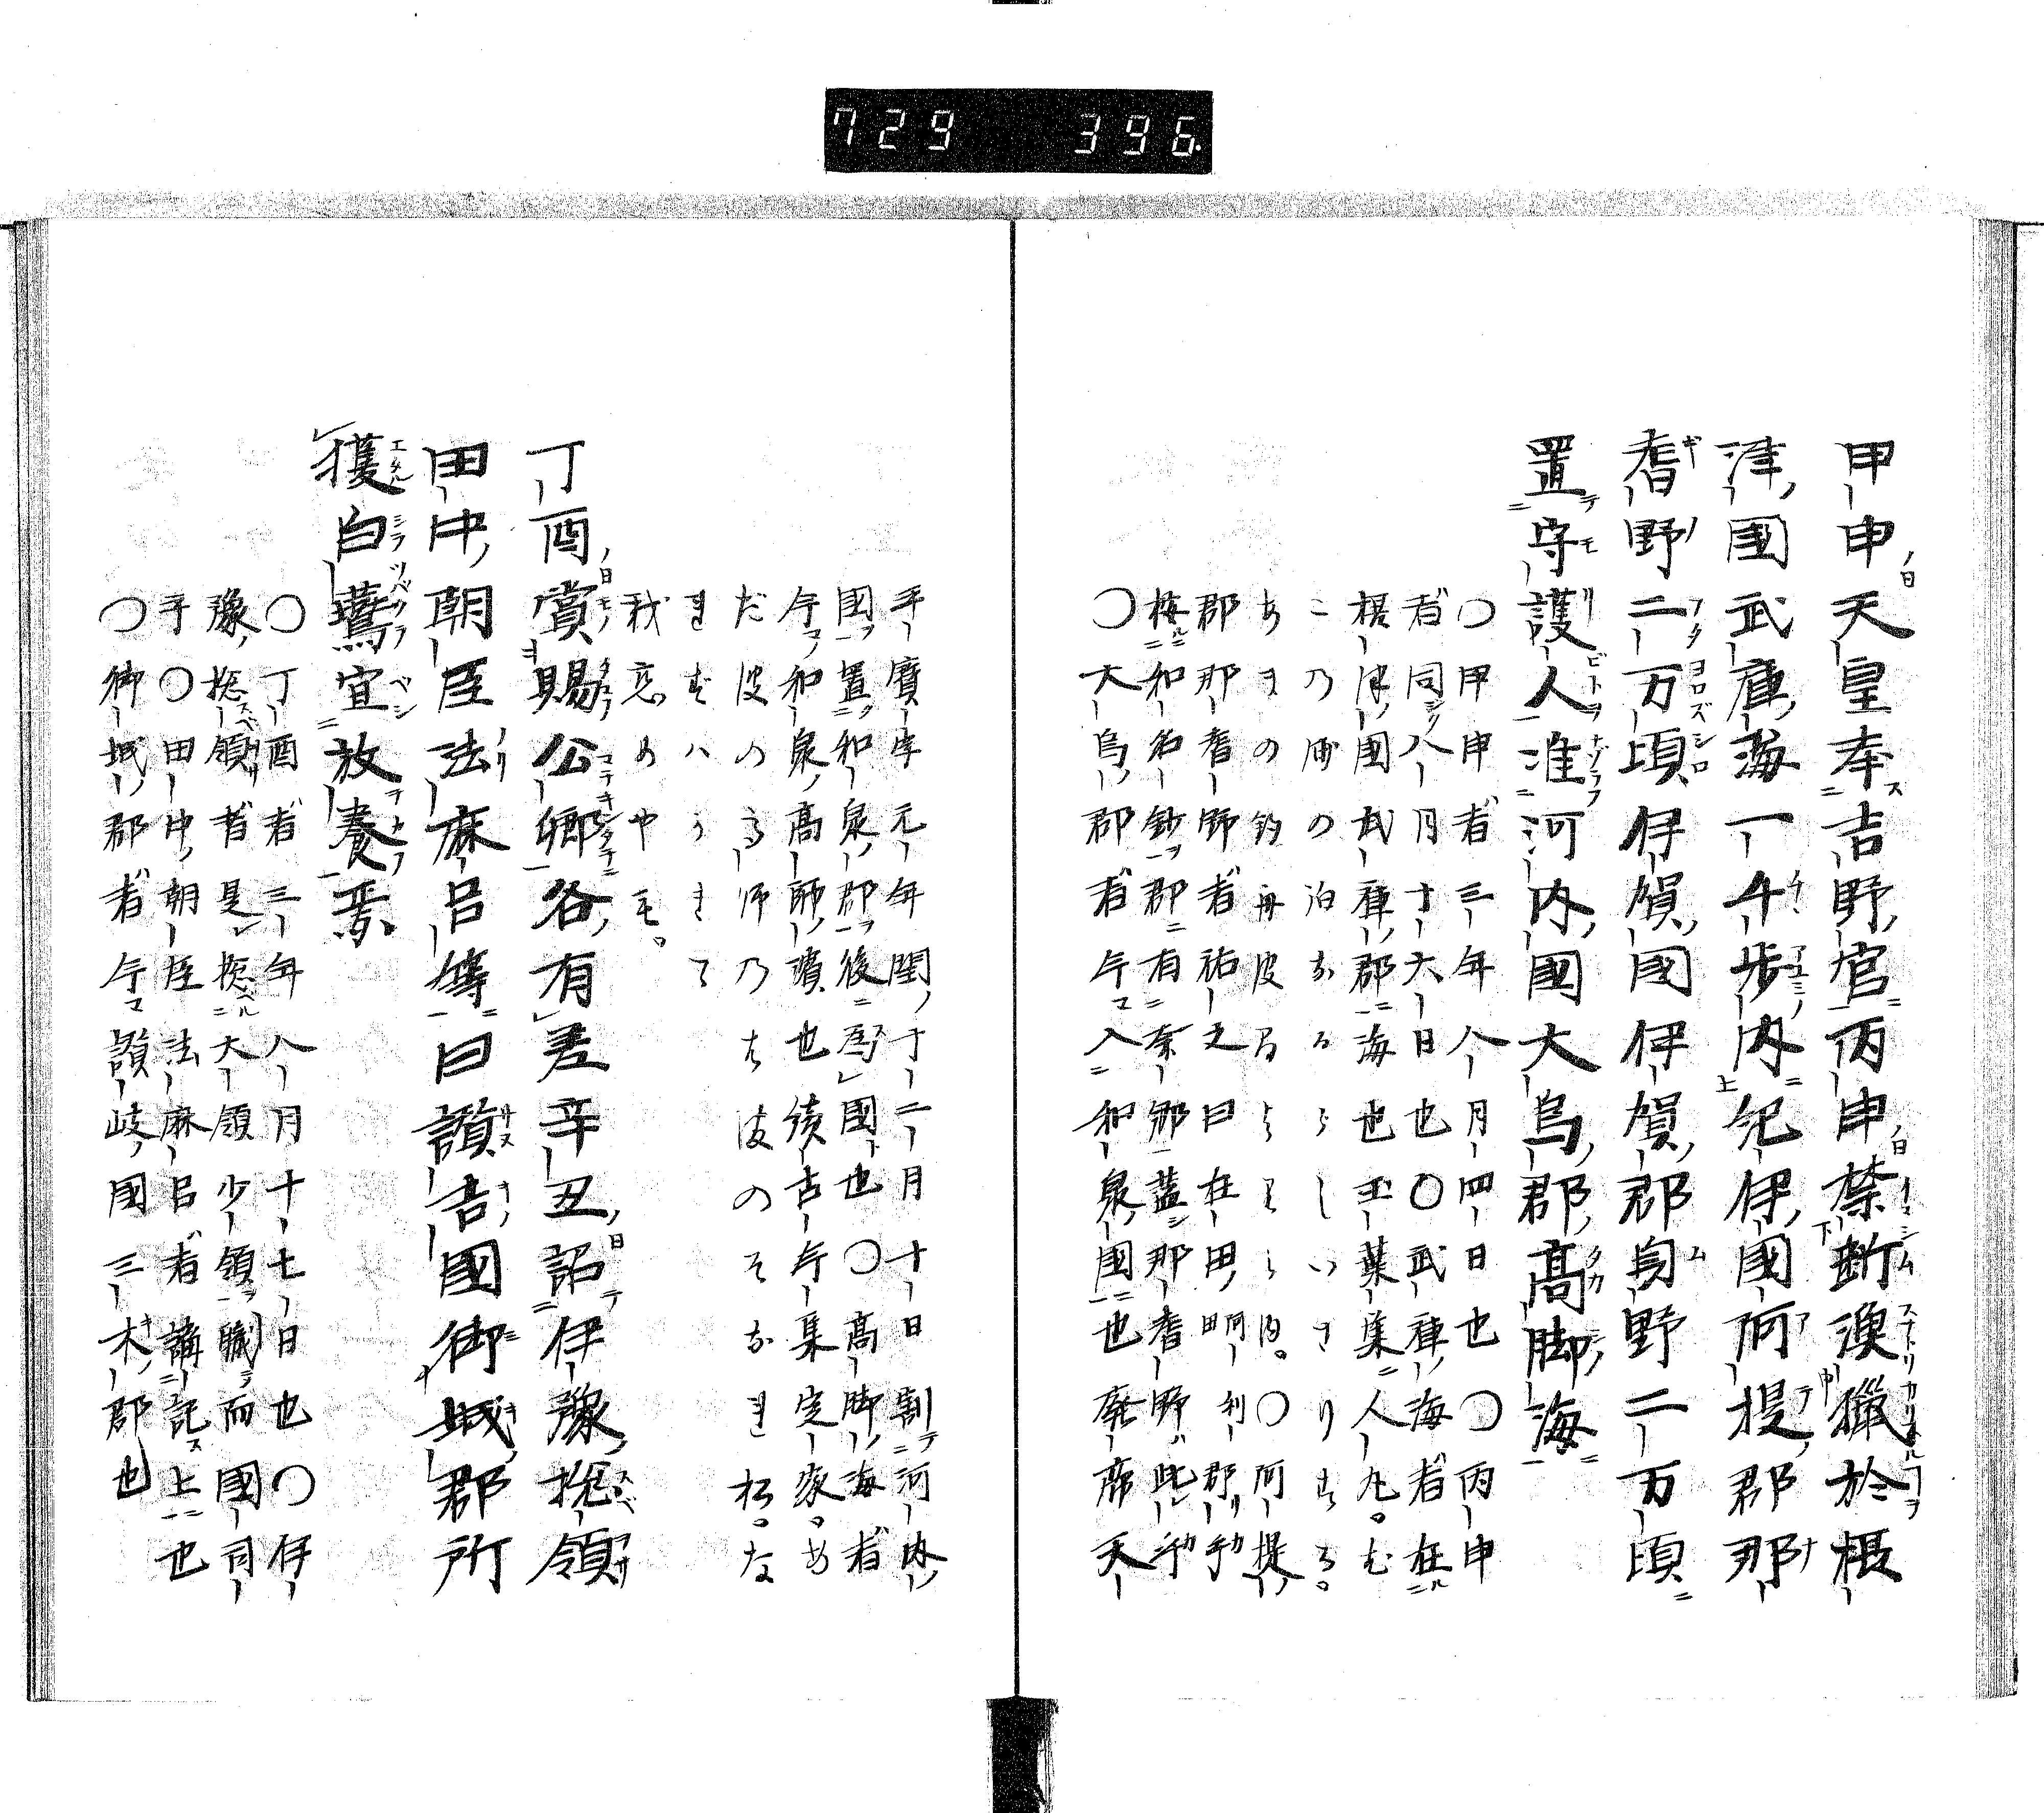 729 396
甲申天皇奉吉野宮丙申禁断漁獵於摂
津國武庫海一千歩内紀伊國阿提郡那
耆野二万頃伊賀國伊賀郡身野二万頃
置守護人准河内國大鳥郡高脚海
〇甲申者三年八月四日也〇丙申
者同八月十六日也〇武庫海者在
摂津國武庫郡海也玉葉集人丸。む
この浦の泊なるらしいさりする。
あまの釣舟波間より〇阿提
郡那耆野者祐之曰在田明利郡乎
按和名鈔郡有奈郷蓋那耆野此乎
〇大鳥郡者今入和泉國也廃帝天
平寳字元年閏十二月十日割河内
國置和泉郡後為國也〇高脚海者
今和泉高師濱也続古今集定家。あ
だ波の高師乃はまのそなれ松。な
れずハうきて
我恋めやも。
丁酉賞賜公卿各有差辛丑詔伊豫捴領
田中朝臣法麻呂等曰讃吉國御城郡所
獲白鷰宜放養焉
〇丁酉者三年八月十七日也〇伊
豫捴領者是捴大領少領職而國司
乎〇田中朝臣法麻呂者講記上也
〇御城郡者今讃岐國三木郡也